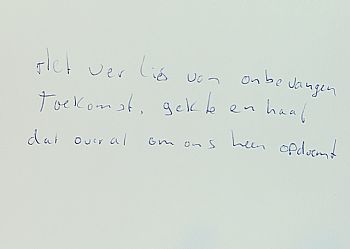 Het verlies van onbevangen
toekomst, gekte en haat
dat overal om ons heen opdoemt